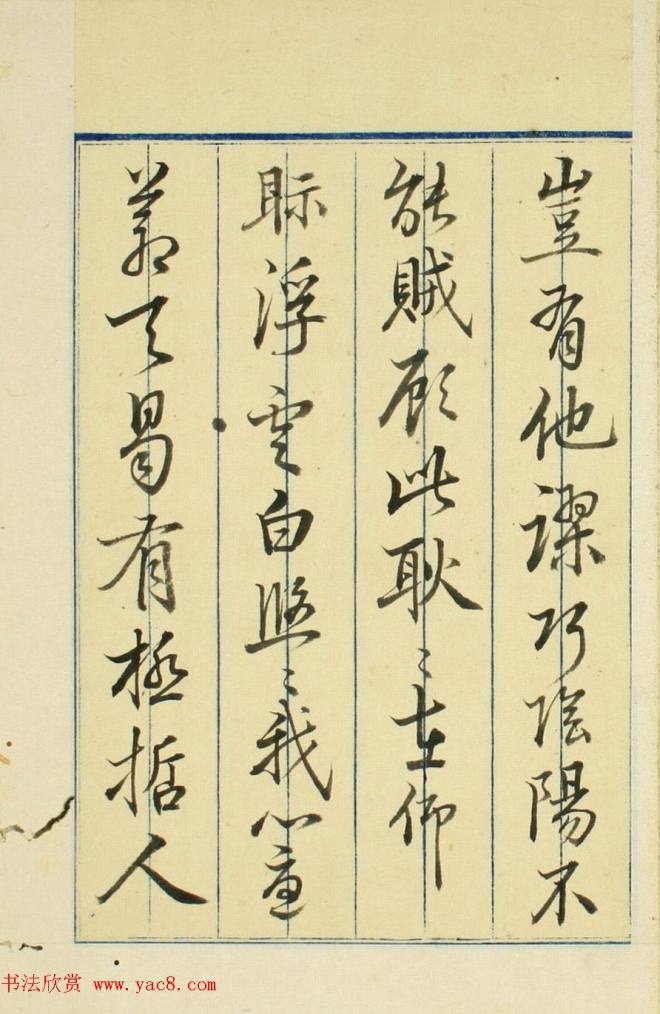 豈有他謬巧陰陽不
能賊顧此耿〻在仰
眎浮雲白悠〻我心憂
蒼天曷有極哲人
书法欣赏 www.yac8.com